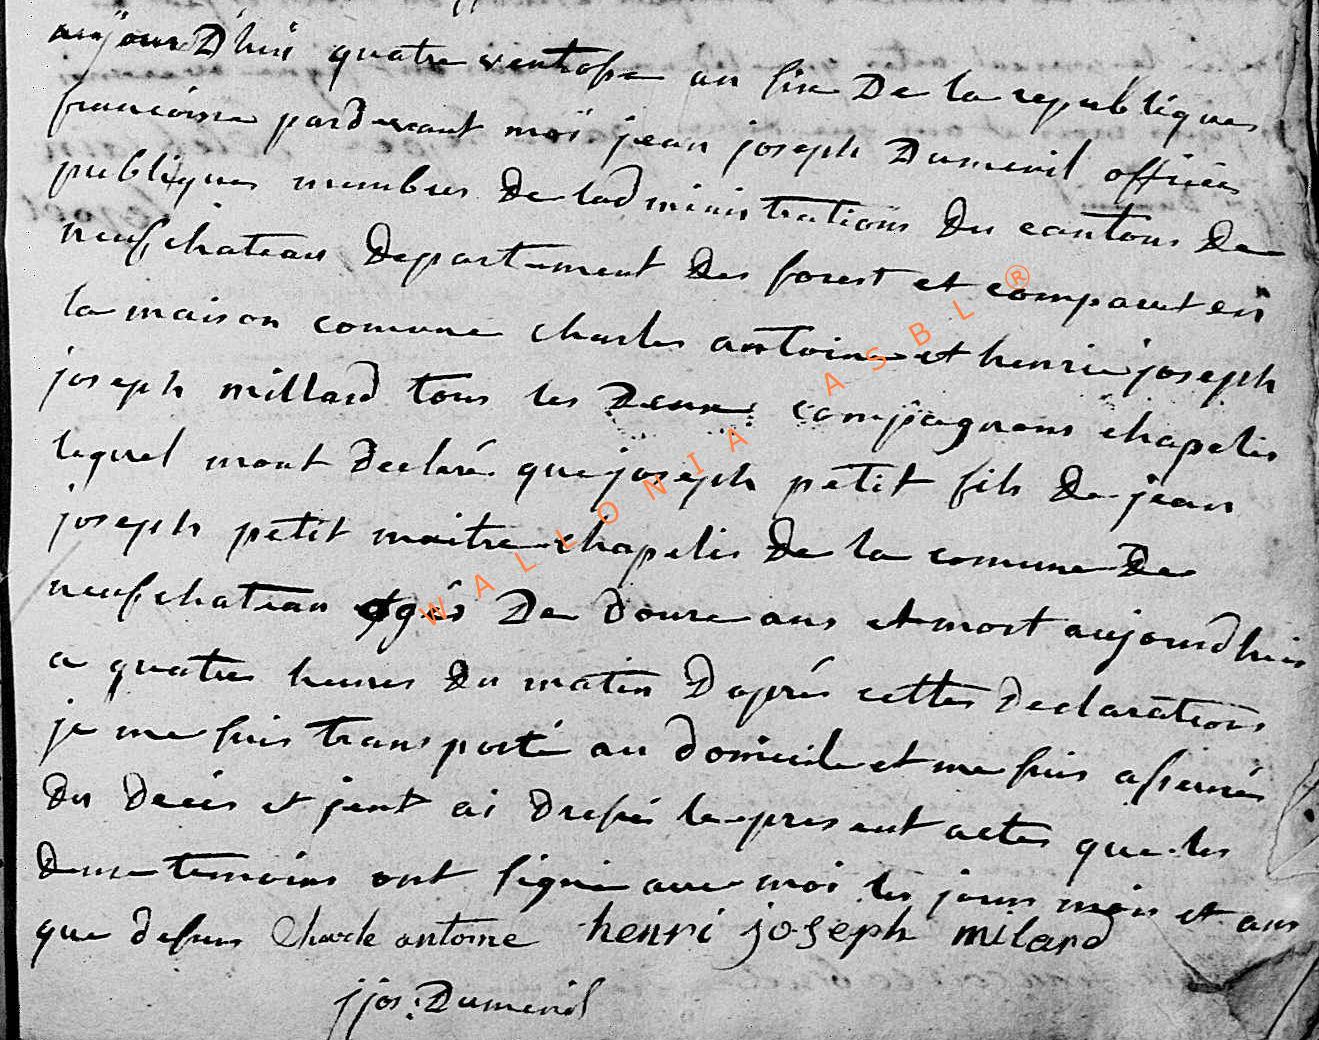 aujourD'hui quatre ventosse an six De la republiques
francoise pardevant moi jean joseph Dumenil officiés
publiques membres De ladministrations Du cantons De
neufchateau Departement Des forest et comparut en
la maison comune charles antoine et henrie joseph
joseph millard tous les Deux compagnons chapelis
lequel mont Declaré que joseph petit fils De jean
joseph petit maitre chapelis De la comune De
neufchateau agés De douze ans et mort aujourdhuis
a quatres heures Du matin Daprés cettes Declarations
je me suis transporté au domicile et me suis assurés
Du Decés et jent ai Dressés le present actes que les
Deux temoins ont signié avec moi les jours mois et ans
que dessus Charle antoine henri joseph milard
jjos: Dumenil
WALLONIA ASBL ®